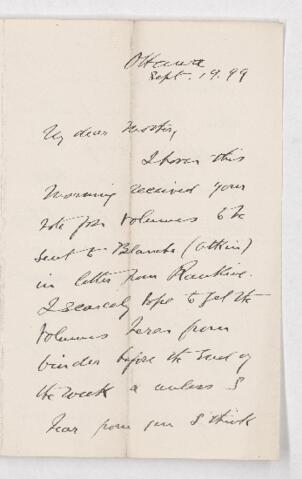 Ottawa
Sept. 19. 99
My dear
I have this
morning received your
note for volumes to be
sent to Blanche (Atkin)
in letter from Rankine.
I scarcely hope to get the
volumes from
binder before the end of
the week & unless I
hear from you I think